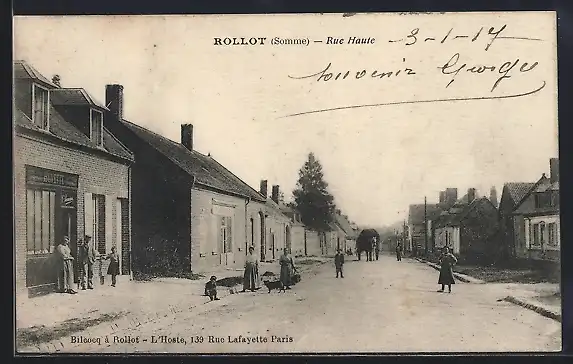 ROLLOT (Somme) — Rue Haute
3-1-17
Souvenir Georges
BUVETTE
Bilcocq à Rollot – L'Hoste, 139 Rue Lafayette Paris